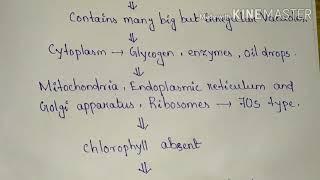 KINEMASTER
Contains many big but irregular
Cytoplasm → Glycogen, enzymes, oil drops.
Mitochondria, Endoplasmic reticulum and
Golgi apparatus, Ribosomes → 70s type.
chlorophyll absent